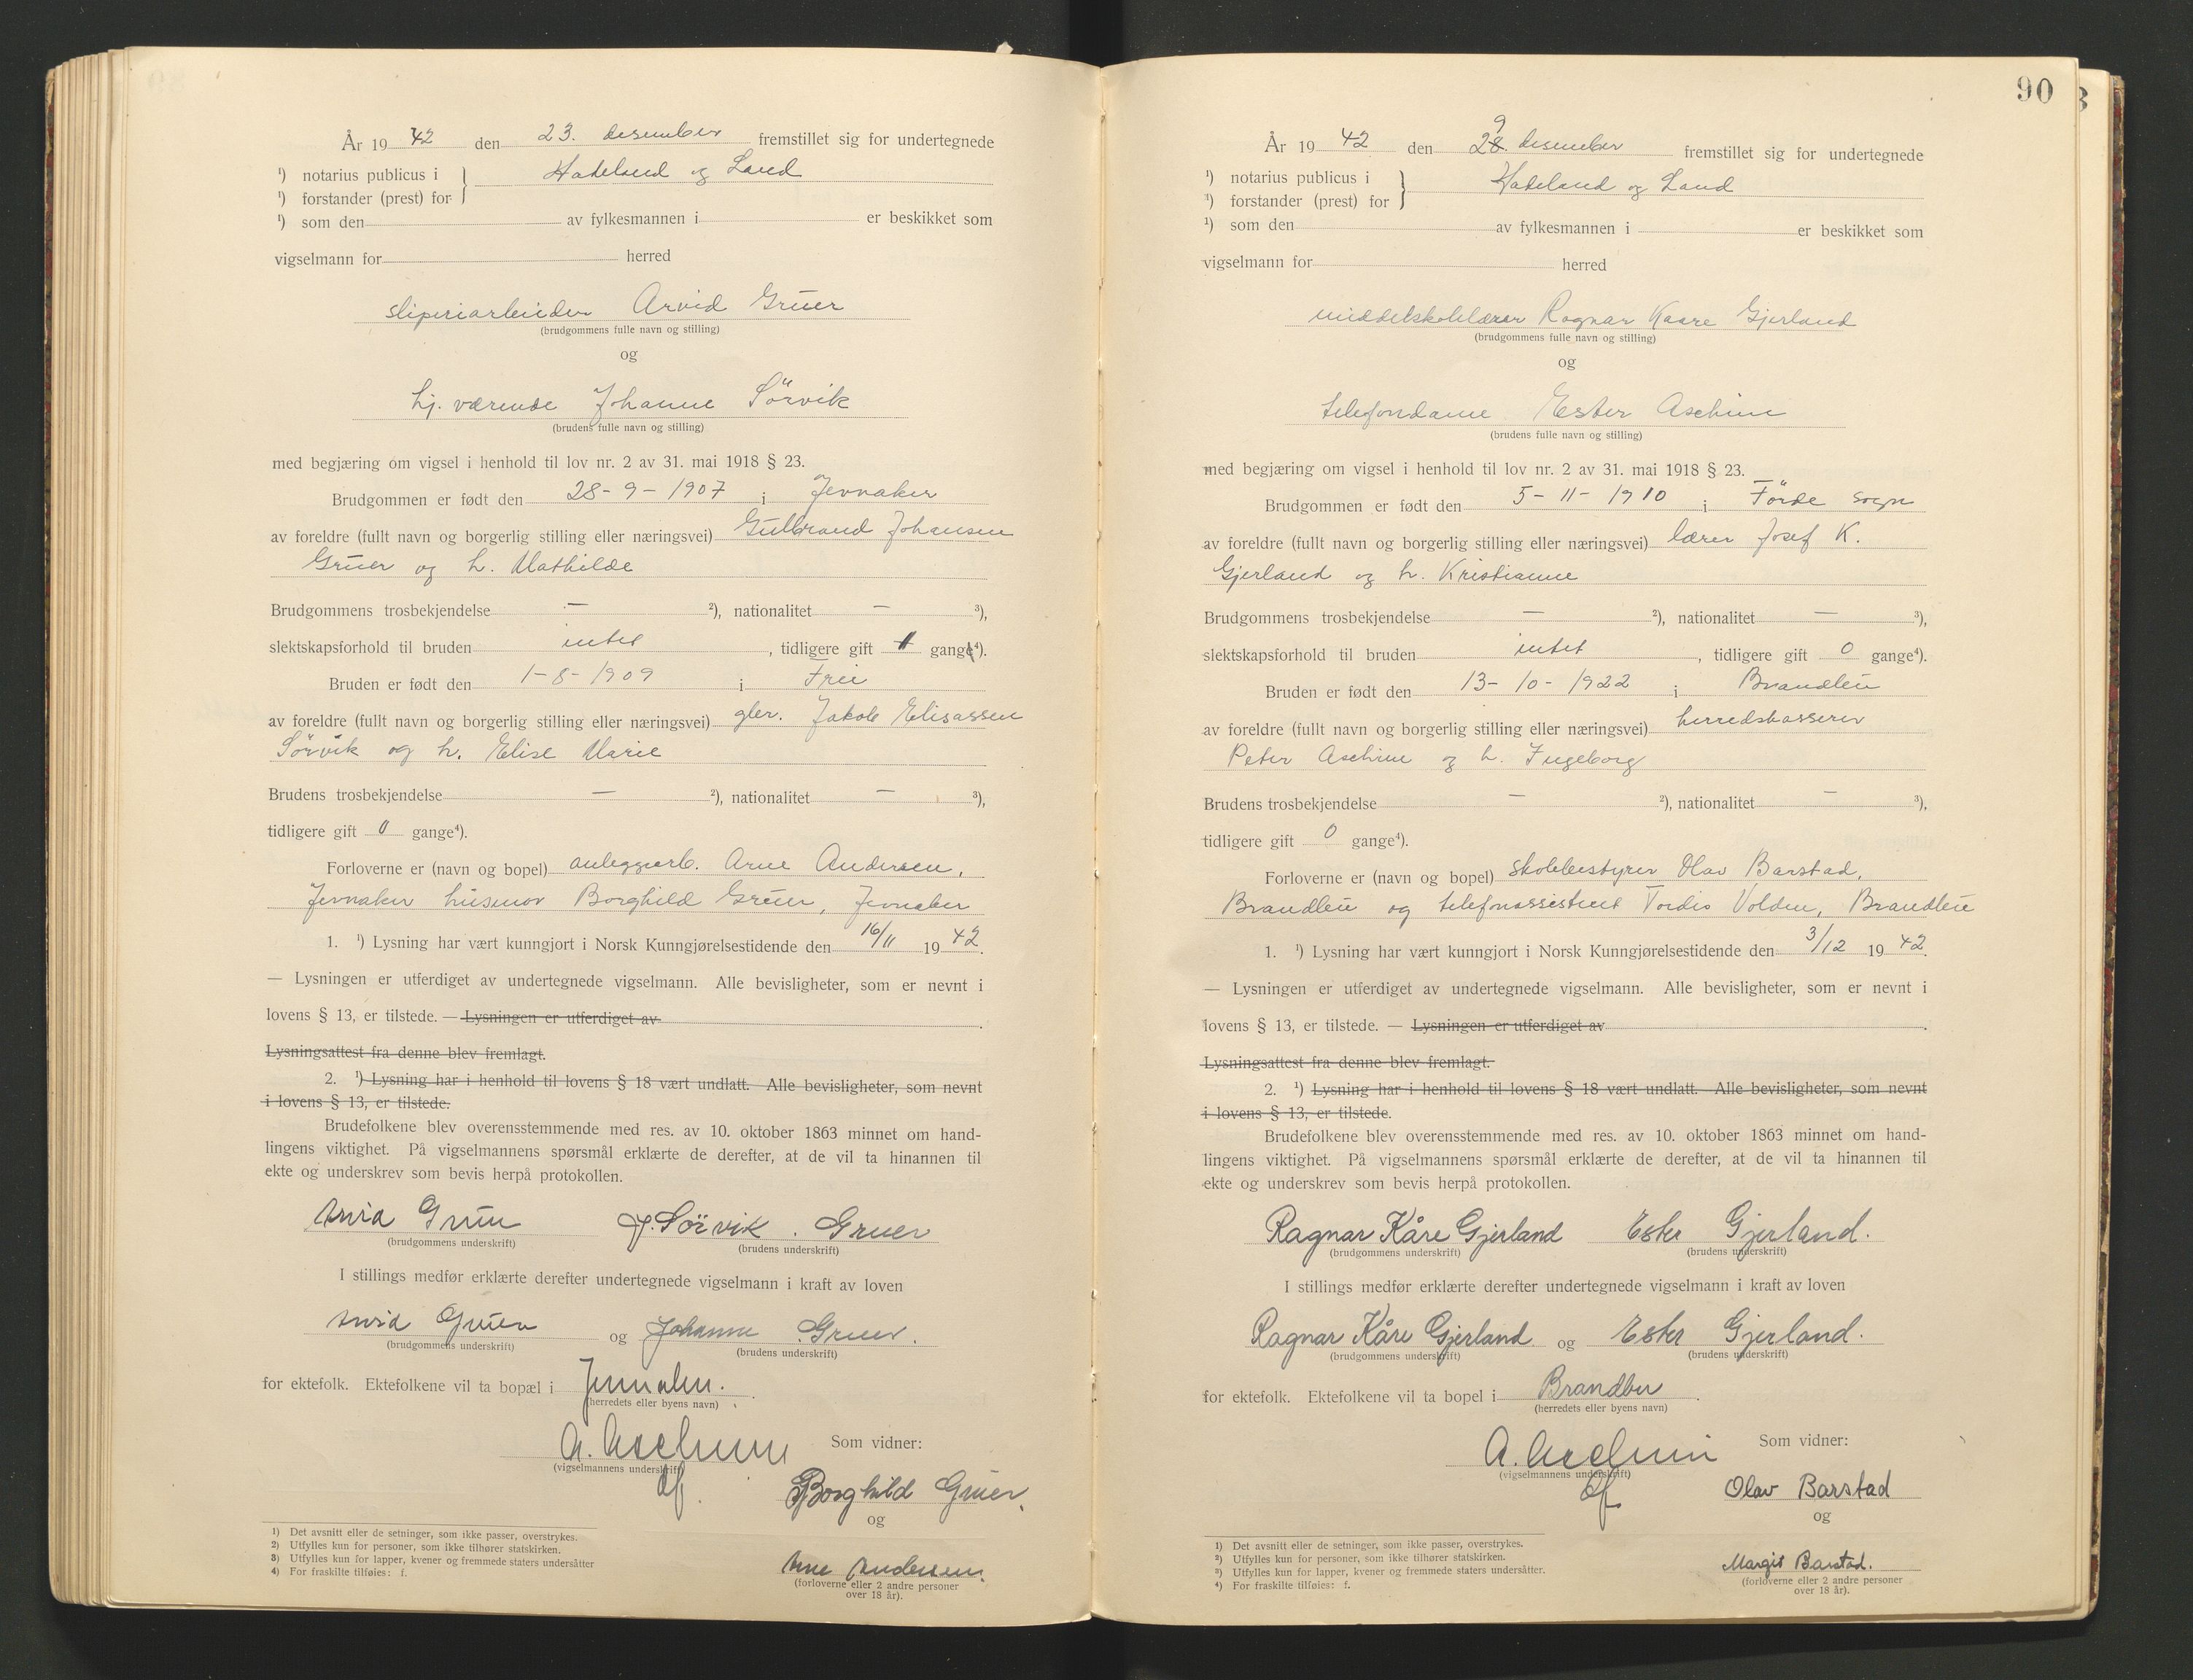 År 19 42 den 23. desember fremstillet sig for undertegnede
¹) notarius publicus i } Hadeland og Land
¹) forstander (prest) for
¹) som den av fylkesmannen i er beskikket som
vigselmann for herred
sliperiarbeider Arvid Gruer
(brudgommens fulle navn og stilling)
og
hj. værende Johanne Sörvik
(brudens fulle navn og stilling)
med begjæring om vigsel i henhold til lov nr. 2 av 31. mai 1918 § 23.
Brudgommen er født den 28-9-1907 i Jevnaker
av foreldre (fullt navn og borgerlig stilling eller næringsvei) Gulbrand Johansen
Gruer og h. Mathilde
Brudgommens trosbekjendelse — ²), nationalitet — ³),
slektskapsforhold til bruden intet, tidligere gift 1 gang⁴).
Bruden er født den 1-8-1909 i Frei
av foreldre (fullt navn og borgerlig stilling eller næringsvei) gbr. Jakob Elisassen
Sörvik og h. Elise Marie
Brudens trosbekjendelse — ²), nationalitet — ³),
tidligere gift 0 gange⁴).
Forloverne er (navn og bopel) anleggsarb. Arne Andersen,
Jevnaker husmor Borghild Gruer, Jevnaker
1. ¹) Lysning har vært kunngjort i Norsk Kunngjørelsestidende den 16/11 19 42.
— Lysningen er utferdiget av undertegnede vigselmann. Alle bevisligheter, som er nevnt i
lovens § 13, er tilstede. — Lysningen er utferdiget av .
Lysningsattest fra denne blev fremlagt.
2. ¹) Lysning har i henhold til lovens § 18 vært undlatt. Alle bevisligheter, som nevnt
i lovens § 13, er tilstede.
Brudefolkene blev overensstemmende med res. av 10. oktober 1863 minnet om hand-
lingens viktighet. På vigselmannens spørsmål erklærte de derefter, at de vil ta hinannen til
ekte og underskrev som bevis herpå protokollen.
Arvid Gruer J. Sörvik. Gruer
(brudgommens underskrift) (brudens underskrift)
I stillings medfør erklærte derefter undertegnede vigselmann i kraft av loven
Arvid Gruer og Johanne Gruer.
(brudgommens underskrift) (brudens underskrift)
for ektefolk. Ektefolkene vil ta bopæl i Jevnaker.
(herredets eller byens navn)
A. Aschim Som vidner:
(vigselmannens underskrift)
Borghild Gruer.
og
Arne Andersen.
(forloverne eller 2 andre personer
over 18 år).
1) Det avsnitt eller de setninger, som ikke passer, overstrykes.
2) Utfylles kun for personer, som ikke tilhører statskirken.
3) Utfylles kun for lapper, kvener og fremmede staters undersåtter
4) For fraskilte tilføies: f.
90
År 19 42 den 29. desember fremstillet sig for undertegnede
¹) notarius publicus i } Hadeland og Land
¹) forstander (prest) for
¹) som den av fylkesmannen i er beskikket som
vigselmann for herred
middelskolelærer Ragnar Kaare Gjerland
(brudgommens fulle navn og stilling)
og
telefondame Ester Aschim
(brudens fulle navn og stilling)
med begjæring om vigsel i henhold til lov nr. 2 av 31. mai 1918 § 23.
Brudgommen er født den 5-11-1910 i Förde sogn
av foreldre (fullt navn og borgerlig stilling eller næringsvei) lærer Josef K.
Gjerland og h. Kristianne
Brudgommens trosbekjendelse — ²), nationalitet — ³),
slektskapsforhold til bruden intet, tidligere gift 0 gange⁴).
Bruden er født den 13-10-1922 i Brandbu
av foreldre (fullt navn og borgerlig stilling eller næringsvei) herredskasserer
Peter Aschim og h. Ingeborg
Brudens trosbekjendelse — ²), nationalitet — ³),
tidligere gift 0 gange⁴).
Forloverne er (navn og bopel) skolebestyrer Olav Barstad,
Brandbu og telefonassistent Tordis Volden, Brandbu
1. ¹) Lysning har vært kunngjort i Norsk Kunngjørelsestidende den 3/12 19 42.
— Lysningen er utferdiget av undertegnede vigselmann. Alle bevisligheter, som er nevnt i
lovens § 13, er tilstede. — Lysningen er utferdiget av .
Lysningsattest fra denne blev fremlagt.
2. ¹) Lysning har i henhold til lovens § 18 vært undlatt. Alle bevisligheter, som nevnt
i lovens § 13, er tilstede.
Brudefolkene blev overensstemmende med res. av 10. oktober 1863 minnet om hand-
lingens viktighet. På vigselmannens spørsmål erklærte de derefter, at de vil ta hinannen til
ekte og underskrev som bevis herpå protokollen.
Ragnar Kåre Gjerland Ester Gjerland.
(brudgommens underskrift) (brudens underskrift)
I stillings medfør erklærte derefter undertegnede vigselmann i kraft av loven
Ragnar Kåre Gjerland og Ester Gjerland.
(brudgommens underskrift) (brudens underskrift)
for ektefolk. Ektefolkene vil ta bopel i Brandbu.
(herredets eller byens navn)
A. Aschim Som vidner:
(vigselmannens underskrift)
Olav Barstad
og
Margit Barstad.
(forloverne eller 2 andre personer
over 18 år).
¹) Det avsnitt eller de setninger, som ikke passer, overstrykes.
²) Utfylles kun for personer, som ikke tilhører statskirken.
³) Utfylles kun for lapper, kvener og fremmede staters undersåtter.
⁴) For fraskilte tilføies: f.